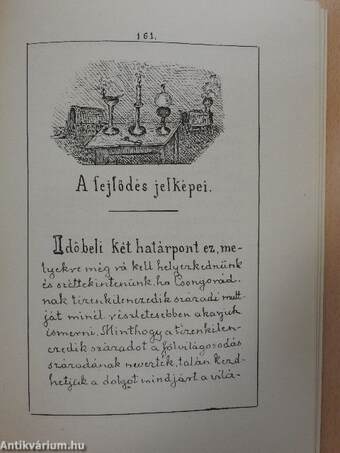 161.
A fejlődés jelképei.
Időbeli két határpont ez, me-
lyekre még rá kell helyezkednünk
és széttekintenünk, ha Csongorád-
nak tizenkilenczedik századi mult-
ját minél részletesebben akarjuk
ismerni. Minthogy a tizenkilen-
czedik századot a fölvilágosodás
századának nevezték, talán kezd-
hetjük a dolgot mindjárt a vilá-
Antikvárium.hu